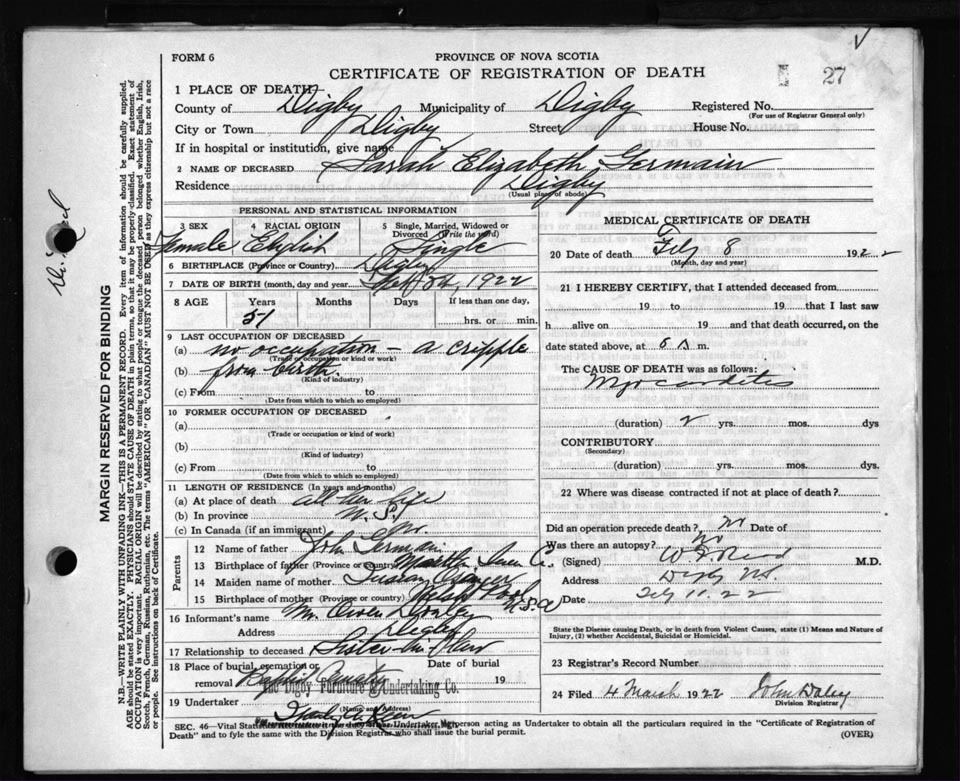 FORM 6
PROVINCE OF NOVA SCOTIA
CERTIFICATE OF REGISTRATION OF DEATH
27
1 PLACE OF DEATH
County of Digby Municipality of Digby Registered No.
(For use of Registrar General only)
City or Town Digby Street House No.
If in hospital or institution, give name
2 NAME OF DECEASED Sarah Elizabeth Germain
Residence Digby
(Usual place of abode)
PERSONAL AND STATISTICAL INFORMATION
3 SEX 4 RACIAL ORIGIN 5 Single, Married, Widowed or Divorced (Write the word)
Female English Single
6 BIRTHPLACE (Province or Country) Digby
7 DATE OF BIRTH (month, day and year) 8th, 1922
8 AGE Years Months Days If less than one day,
51 hrs. or min.
9 LAST OCCUPATION OF DECEASED
(a) no occupation - a cripple
(Trade or occupation or kind or work)
(b) from birth.
(Kind of industry)
(c) From to
(Date from which to which so employed)
10 FORMER OCCUPATION OF DECEASED
(a)
(Trade or occupation or kind of work)
(b)
(Kind of industry)
(c) From to
(Date from which to which so employed)
11 LENGTH OF RESIDENCE (In years and months)
(a) At place of death all her life
(b) In province N.S.
(c) In Canada (if an immigrant)
Parents
12 Name of father John Germain
13 Birthplace of father (Province or country)
14 Maiden name of mother Susan
15 Birthplace of mother (Province or country)
16 Informant's name Mrs Owen
Address Digby
17 Relationship to deceased Sister-in-law
18 Place of burial, cremation or removal Baptist Date of burial 19
The Digby Furniture & Undertaking Co.
19 Undertaker
(Name and Address)
MEDICAL CERTIFICATE OF DEATH
20 Date of death Feby 8 1922
(Month, day and year)
21 I HEREBY CERTIFY, that I attended deceased from
19 to 19 that I last saw
h alive on 19 and that death occurred, on the
date stated above, at 5 a m.
The CAUSE OF DEATH was as follows:
Myocarditis
(duration) 2 yrs. mos. dys
CONTRIBUTORY
(Secondary)
(duration) yrs. mos. dys.
22 Where was disease contracted if not at place of death?
Did an operation precede death? Date of
Was there an autopsy? no
(Signed) M.D.
Address Digby NS.
Date Feby 11. 22
State the Disease causing Death, or in death from Violent Causes, state (1) Means and Nature of Injury, (2) whether Accidental, Suicidal or Homicidal.
23 Registrar's Record Number
24 Filed 4 March 1922 John Daley
Division Registrar
SEC. 46—Vital Statistics
person acting as Undertaker to obtain all the particulars required in the "Certificate of Registration of
Death" and to fyle the same with the Division Registrar who shall issue the burial permit. (OVER)
MARGIN RESERVED FOR BINDING
N.B.—WRITE PLAINLY WITH UNFADING INK—THIS IS A PERMANENT RECORD. Every item of information should be carefully supplied.
AGE should be stated EXACTLY. PHYSICIANS should STATE CAUSE OF DEATH in plain terms, so that it may be properly classified. Exact statement of
OCCUPATION is very important. RACIAL ORIGIN will be described by stating to what people or tongue the deceased person belonged, whether English, Irish,
Scotch, French, German, Russian, Ruthenian, etc. The terms "AMERICAN" OR "CANADIAN" MUST NOT BE USED as they express citizenship but not a race
or people. See instructions on back of Certificate.